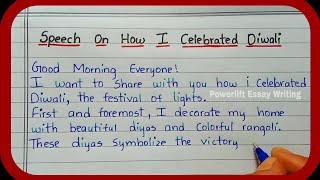 Speech On How I Celebrated Diwali
Good Morning Everyone!
I want to Share with you how i Celebrated
Diwali, the festival of lights.
Powerlift Essay Writing
First and foremost, I decorate my home
with beautiful diyas and Colorful rangoli.
These diyas Symbolize the victory